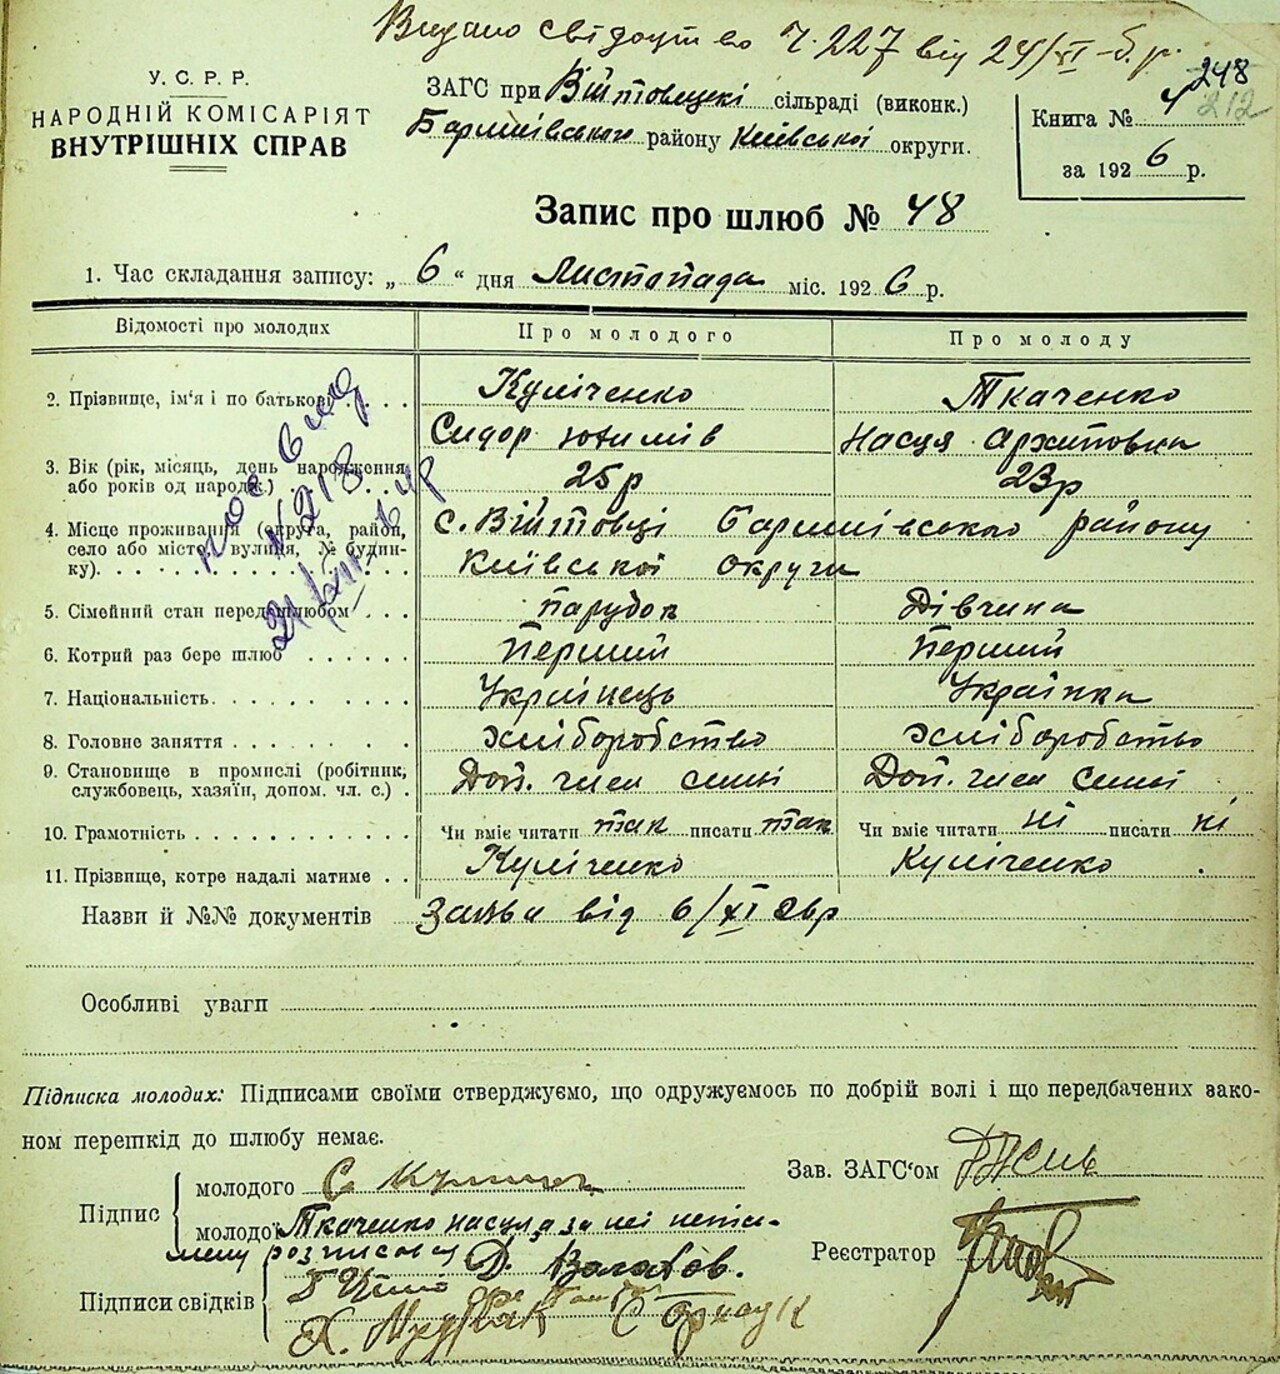 Видано свідоцтво Ч. 227 від 24/XI б.р.
248
212
У. С. Р. Р.
НАРОДНІЙ КОМІСАРІЯТ
ВНУТРІШНІХ СПРАВ
ЗАГС при Війтовецкі сільраді (виконк.)
Баришівського району Київської округи.
Книга № 4
за 1926 р.
Запис про шлюб № 48
1. Час складання запису: „ 6 “ дня Листопада міс. 1926 р.
Відомості про молодих Про молодого Про молоду
2. Прізвище, ім‘я і по батькові . . . . Куліченко Ткаченко
Сидор Юхимів Насця Архиповна
3. Вік (рік, місяць, день народження або років од народж.) . . . . 25 р 23 р
4. Місце проживання (округа, район, село або місто, вулиця, № будинку). . . . с. Війтовці Баришівського району
Київської округи
5. Сімейний стан перед шлюбом . . . Парубок Дівчина
6. Котрий раз бере шлюб . . . . . . Перший Перший
7. Національність. . . . . . . . . Українець Українка
8. Головне заняття . . . . . . . . хліборобство хліборобство
9. Становище в промислі (робітник, службовець, хазяїн, допом. чл. с.) . Доп. член симї Доп. член симї
10. Грамотність . . . . . . . . . . . . Чи вміє читати так писати так Чи вміє читати ні писати ні
11. Прізвище, котре надалі матиме . . Куліченко Куліченко
Назви й №№ документів Заява від 6/XI 26р
Особливі уваги
Підписка молодих: Підписами своїми стверджуємо, що одружуємось по добрій волі і що передбачених зако-
ном перешкід до шлюбу немає.
Підпис
молодого С Куліченк
молодої Ткаченко Насця а за неї непись-
мену розписався Д.
Підписи свідків
Зав. ЗАГС‘ом
Реєстратор
№ 218